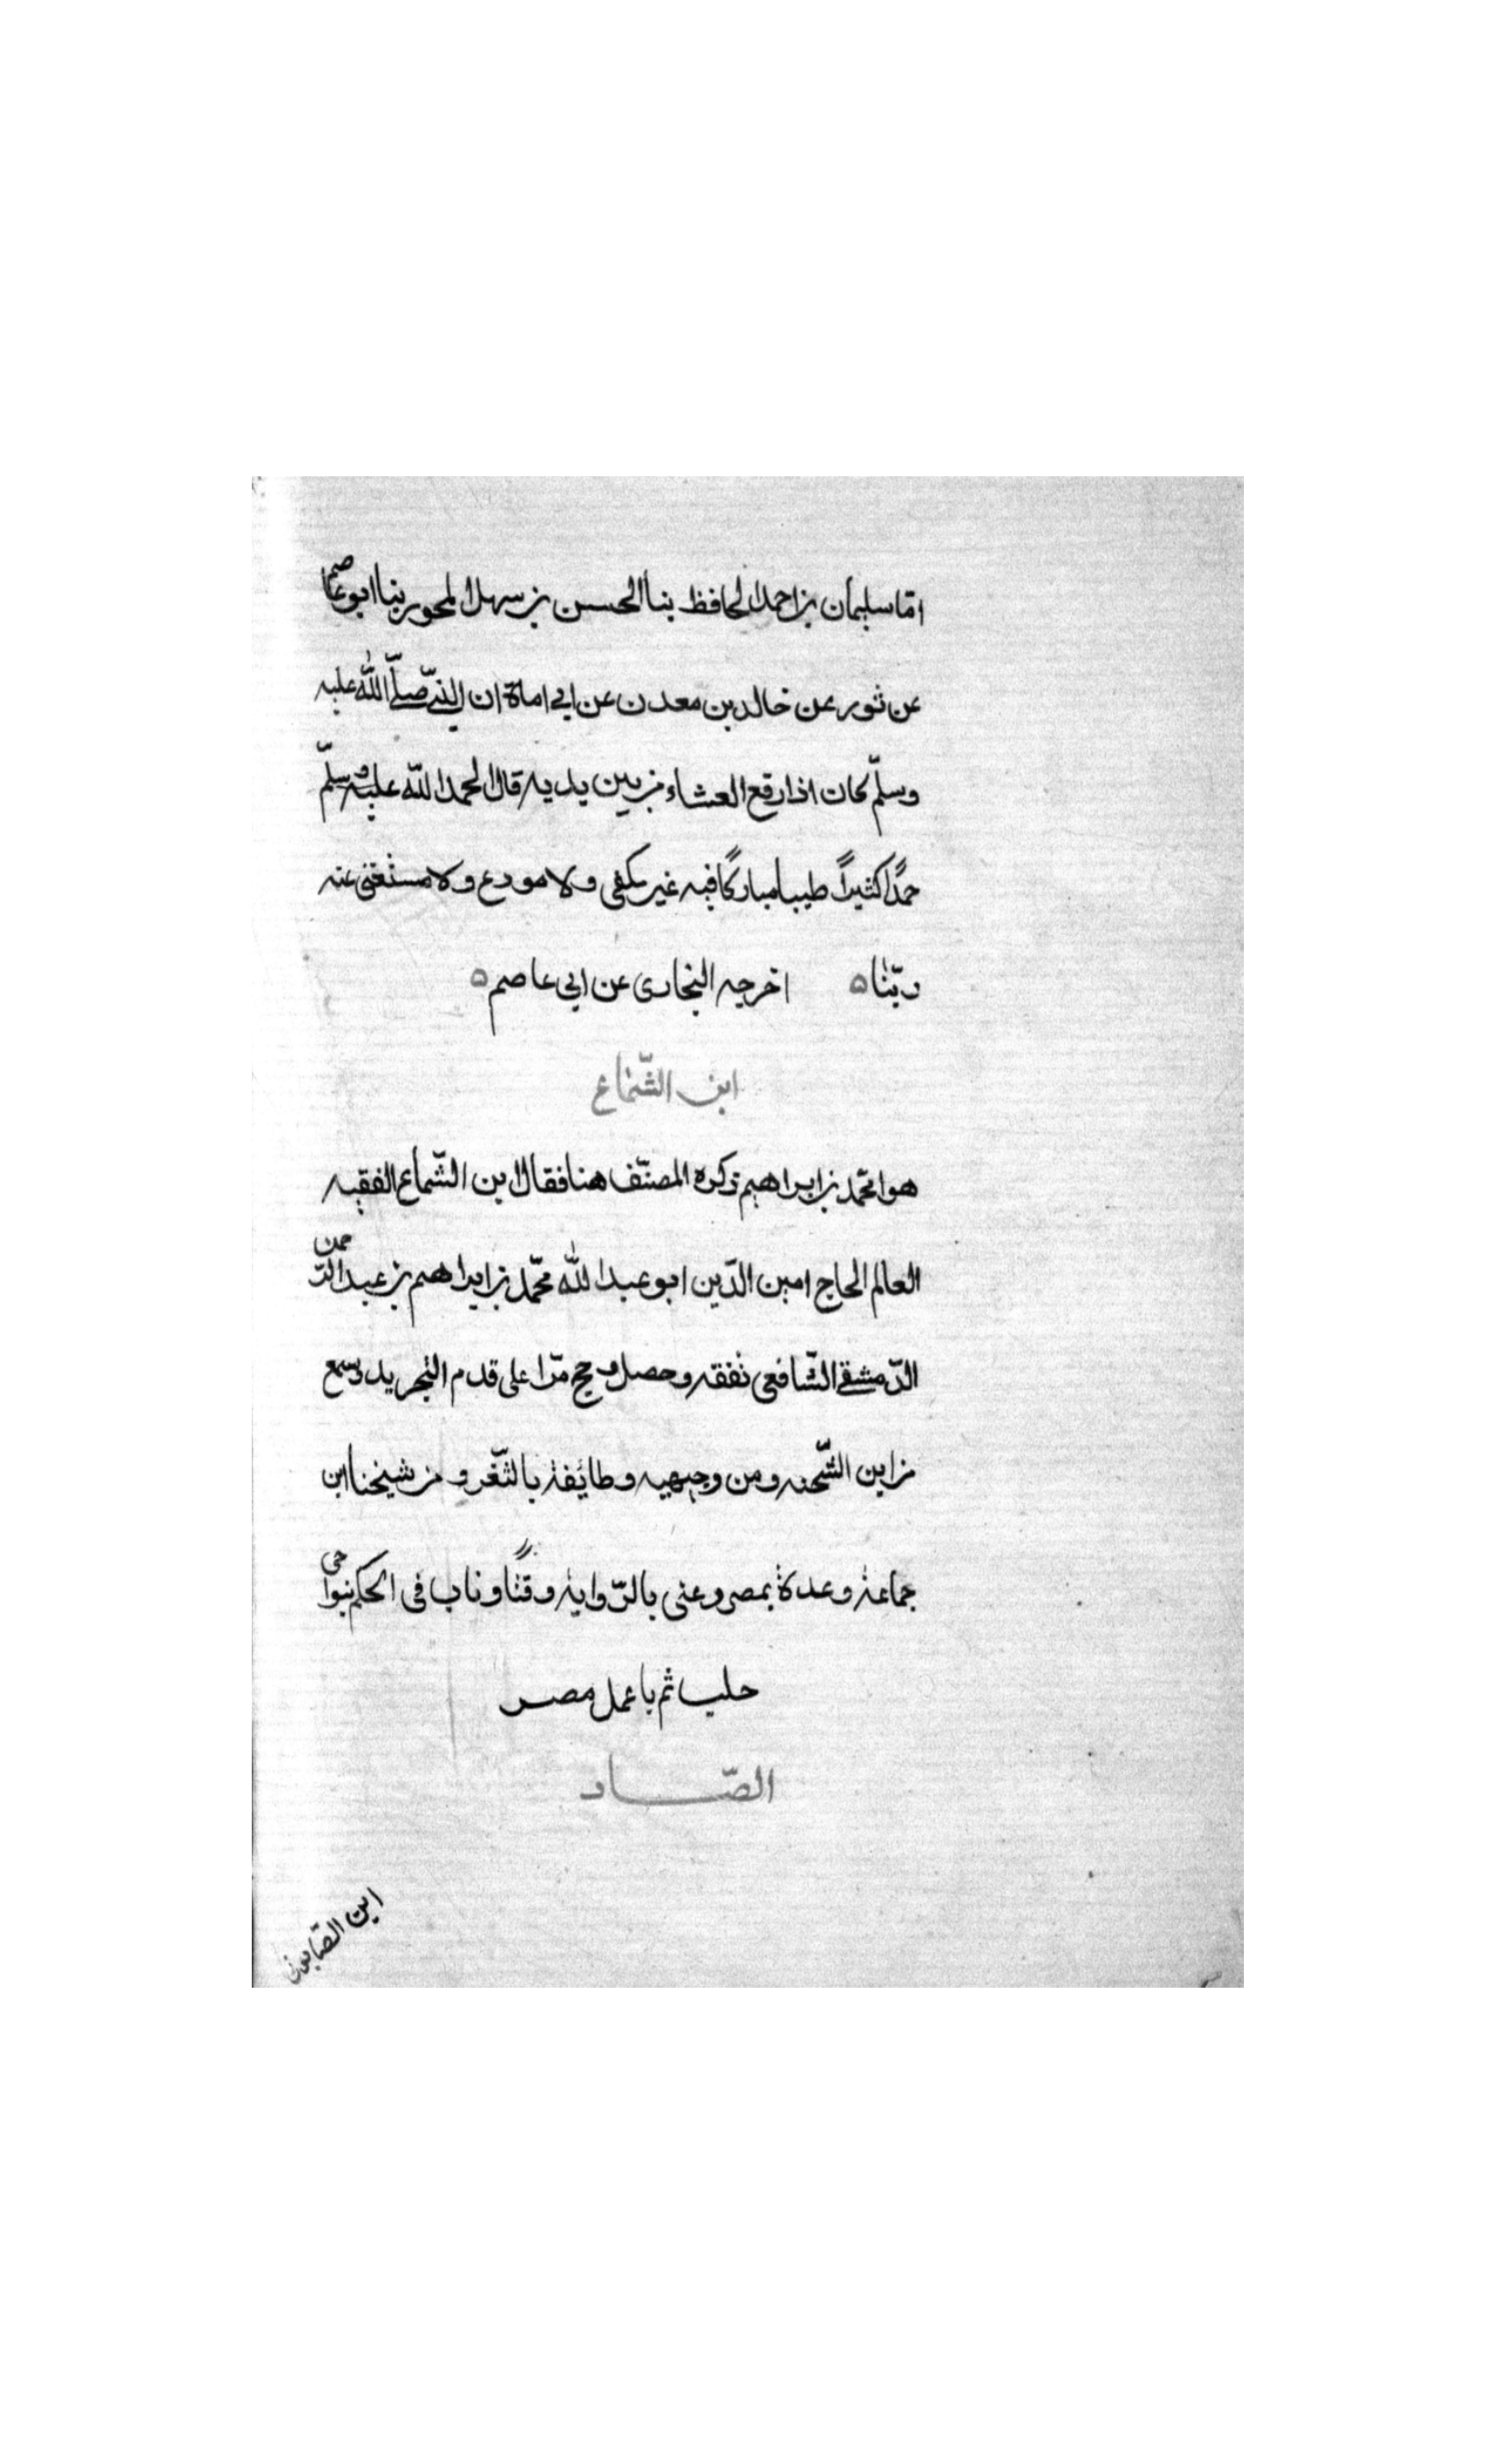 امّا سليمان بن احمد الحافظ بنا الحسن بن سهل المحور بنا ابو عاصم
عن ثور عن خالد بن معدن عن ابي امامة ان النبيّ صلّى اللّه عليه
وسلّم كان اذا رفع العشاء من بين يديه قال الحمد اللّه عليه وسلّم
حمدًا كثيرًا طيبا مباركًا فيه غير مكفى ولا مودع ولا مستغنى عنه
ربّنا ه اخرجه البخارى عن ابي عاصم ه
ابن الشّماع
هو امحّمد بن ابراهيم ذكره المصنّف هنا فقال ابن الشّماع الفقيه
العالم الحاج امين الدّين ابو عبد اللّه محّمد بن ابراهيم بن عبد الرّحمن
الدّمشقي الشّافعي تفقه وحصل وحج مرّا على قدم التجريد وسمع
من ابن الشّحنه ومن وجيهيه وطائفة بالثّغر و من شيخنا ابن
جماعة وعدة بمصر وعنى بالرّواية وقتًا وناب فى الحكم بنواحى
حلب ثم باعمل مصر
الصّاد
ابن الصّابونى